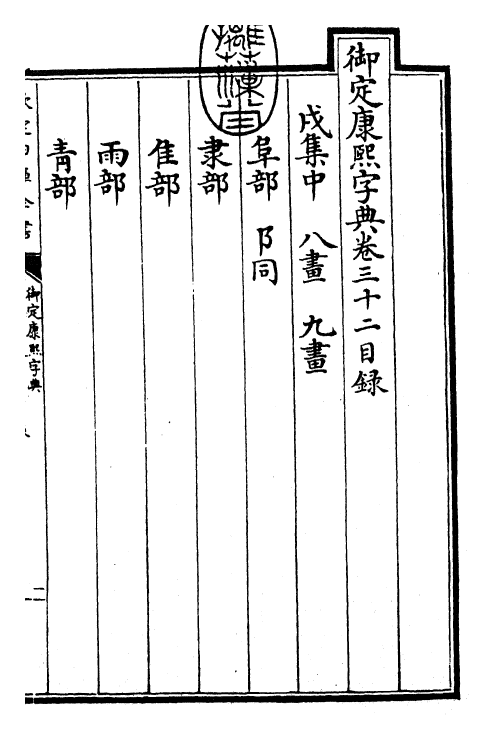 御定康熙字典卷三十二目録
戌集中 八畫 九畫
阜部 阝同
隶部
隹部
雨部
青部
御定康熙字典